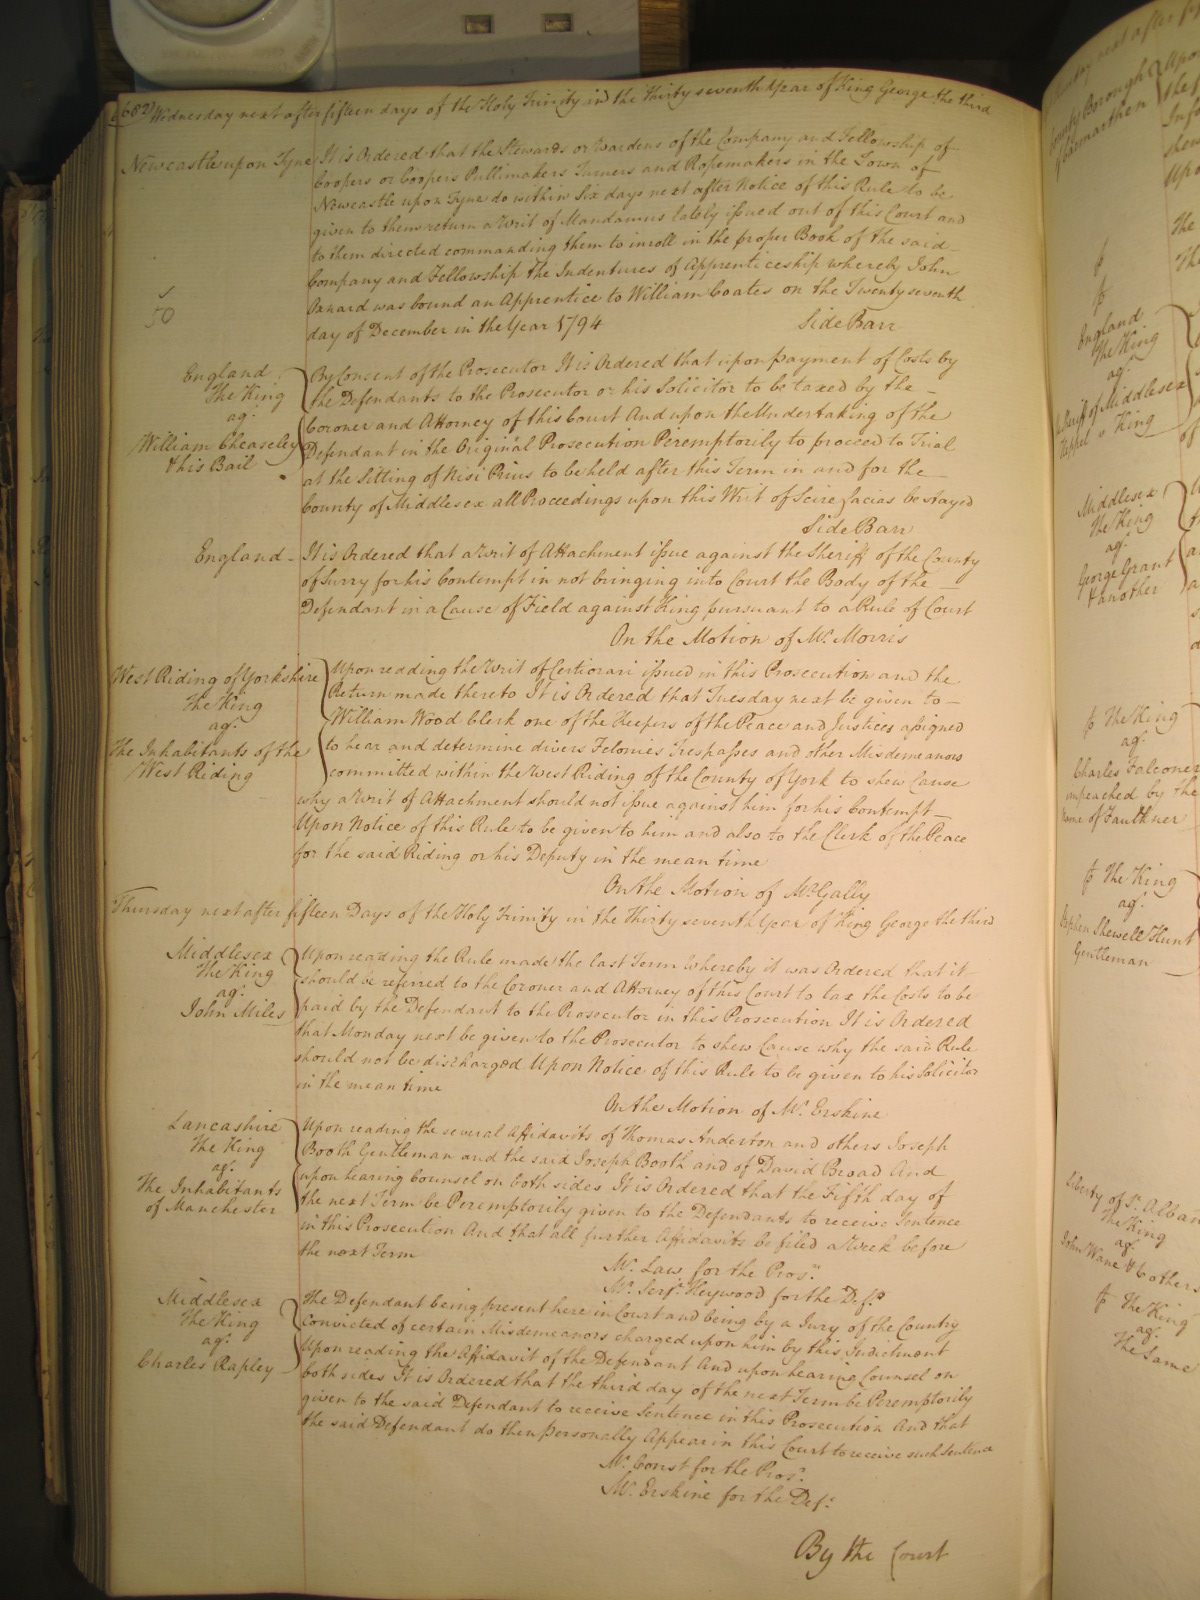 682 Wednesday next after fifteen days of the Holy Trinity in the Thirty seventh Year of King George the third
Newcastle upon Tyne It is Ordered that the Stewards or Wardens of the Company and Fellowship of
Coopers or Coopers Pullimakers Turners and Ropemakers in the Town of
Newcastle upon Tyne do within Six days next after Notice of this Rule to be
given to them return a Writ of Mandamus lately issued out of this Court and
to them directed commanding them to inroll in the proper Book of the said
Company and Fellowship the Indentures of Apprenticeship whereby John
was bound an Apprentice to William Coates on the Twenty seventh
50
day of December in the Year 1794 Side Barr
England
The King
agt.
William Cheaseley
& his Bail
By Concent of the Prosecutor It is Ordered that upon payment of Costs by
the Defendants to the Prosecutor or his Solicitor to be taxed by the
Coroner and Attorney of this Court And upon the Undertaking of the
Defendant in the Original Prosecution Peremptorily to proceed to Trial
at the Sitting of Nisi Prius to be held after this Term in and for the
County of Middlesex all Proceedings upon this Writ of Scire facias be stayed
Side Barr
England - It is Ordered that a Writ of Attachment issue against the Sheriff of the County
of Surry for his Contempt in not bringing into Court the Body of the
Defendant in a Cause of Field against King pursuant to a Rule of Court
On the Motion of Mr. Morris
West Riding of Yorkshire
The King
agt.
The Inhabitants of the
West Riding
Upon reading the Writ of Certiorari issued in this Prosecution and the
Return made thereto It is Ordered that Tuesday next be given to
William Wood Clerk one of the Keepers of the Peace and Justices assigned
to hear and determine divers Felonies Trespasses and other Misdemeanors
committed within the West Riding of the County of York to shew Cause
why a Writ of Attachment should not issue against him for his Contempt
Upon Notice of this Rule to be given to him and also to the Clerk of the Peace
for the said Riding or his Deputy in the mean time
On the Motion of Mr. Gally
Thursday next after fifteen Days of the Holy Trinity in the Thirty seventh Year of King George the third
Middlesex
The King
agt.
John Miles
Upon reading the Rule made the last Term whereby it was Ordered that it
should be referred to the Coroner and Attorney of this Court to tax the Costs to be
paid by the Defendant to the Prosecutor in this Prosecution It is Ordered
that Monday next be given to the Prosecutor to shew Cause why the said Rule
should not be discharged Upon Notice of this Rule to be given to his Solicitor
in the mean time
On the Motion of Mr. Erskine
Lancashire
The King
agt.
The Inhabitants
of Manchester
Upon reading the several Affidavits of Thomas Anderton and others Joseph
Booth Gentleman and the said Joseph Booth and of David Broad And
upon hearing Counsel on both sides It is Ordered that the Fifth day of
the next Term be Peremptorily given to the Defendants to receive Sentence
in this Prosecution And that all further Affidavits be filed a Week before
the next Term
Mr. Law for the Prosr.
Mr. Serjt. Heywood for the Defts.
Middlesex
The King
agt.
Charles Rapley
The Defendant being present here in Court and being by a Jury of the Country
Convicted of certain Misdemeanors charged upon him by this Indictment
Upon reading the Affidavit of the Defendant And upon hearing Counsel on
both sides It is Ordered that the third day of the next Term be Peremptorily
given to the said Defendant to receive Sentence in this Prosecution And that
the said Defendant do then personally Appear in this Court to receive such Sentence
Mr. Const for the Prosr.
Mr. Erskine for the Deft.
By the Court
County Borough
of Carmarthen
England
The King
agt.
Sheriff of Middlesex
v King
Middlesex
The King
agt.
George Grant
& another
The King
agt.
Charles Falconer
impeached by the
name of Faulkner
The King
agt.
Stephen Shewell Hunt
Gentleman
Liberty of St. Alban
The King
agt.
John Wane & 6 others
The King
agt.
The Same